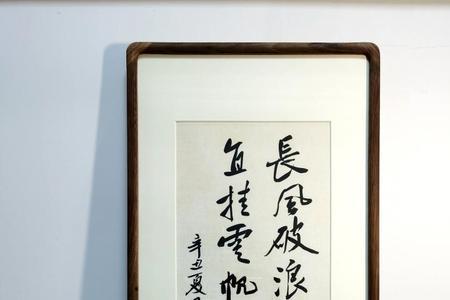 長風破浪
直挂雲帆
辛丑夏